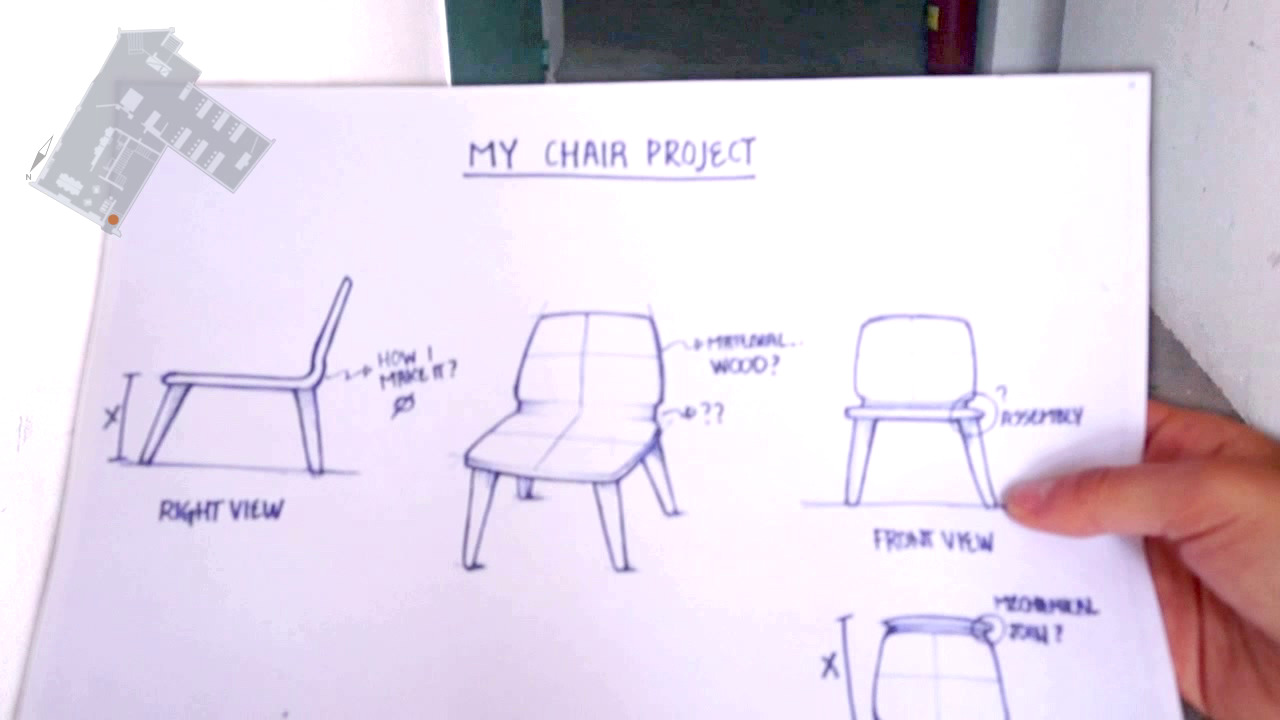 MY CHAIR PROJECT
HOW I
MAKE IT?
X
RIGHT VIEW
MATERIAL..
WOOD?
??
?
ASSEMBLY
FRONT VIEW
MECHANICAL
JOIN?
X
N